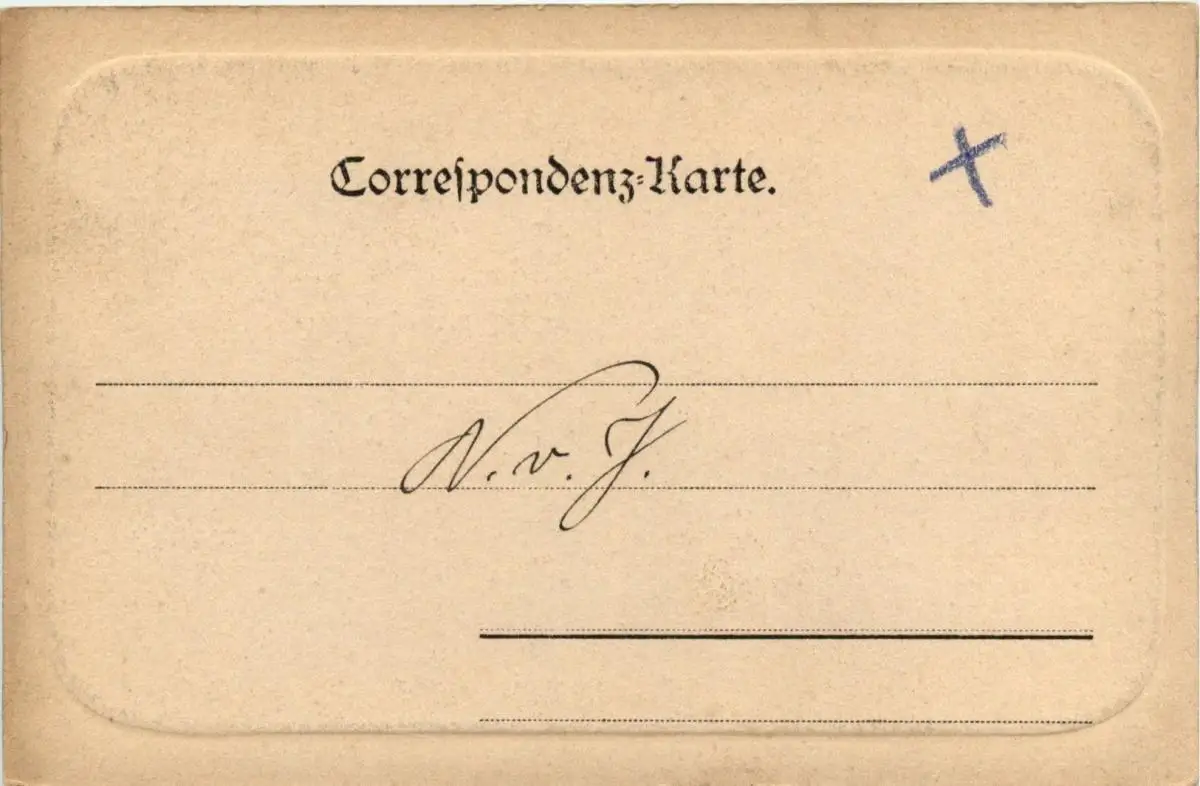 Correſpondenz-Karte.
N. v. J.